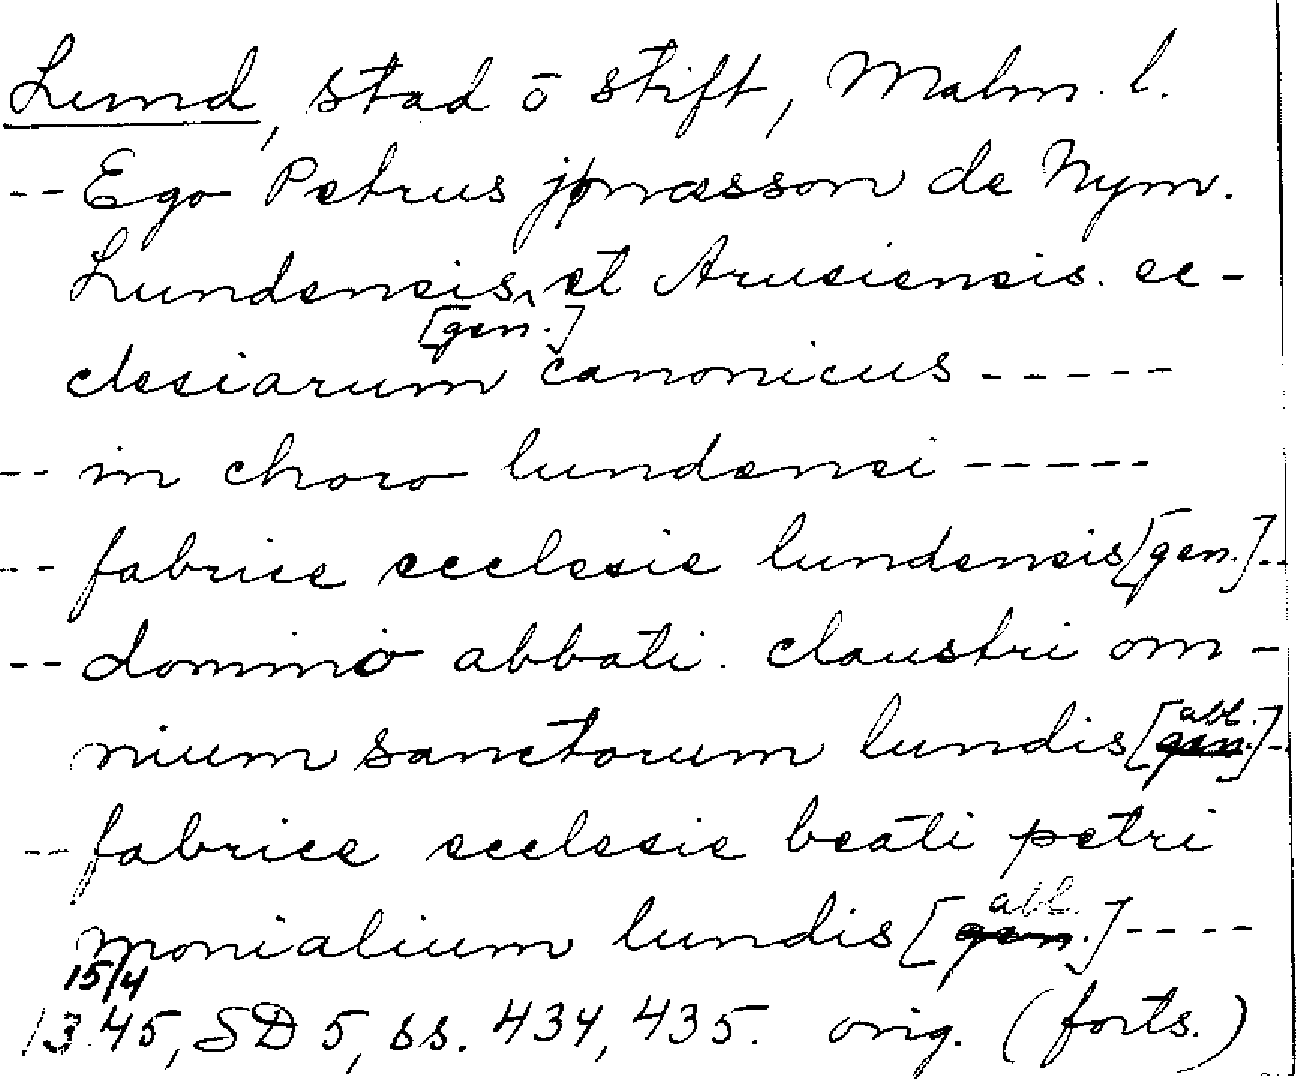 Lund, stad o stift, Malm. l.
-- Ego Petrus jonæsson de Nym.
Lundensis, et Arusiensis. ec-
[gen.]
clesiarum canonicus -----
-- in choro lundensi -----
-- fabrice ecclesie lundensis [gen.] --
-- domino abbati. claustri om-
nium sanctorum lundis [abl. gen.] --
-- fabrice ecclesie beati petri
monialium lundis [abl. gen.] ----
15/4
1345, SD 5, ss. 434, 435. orig. (forts.)